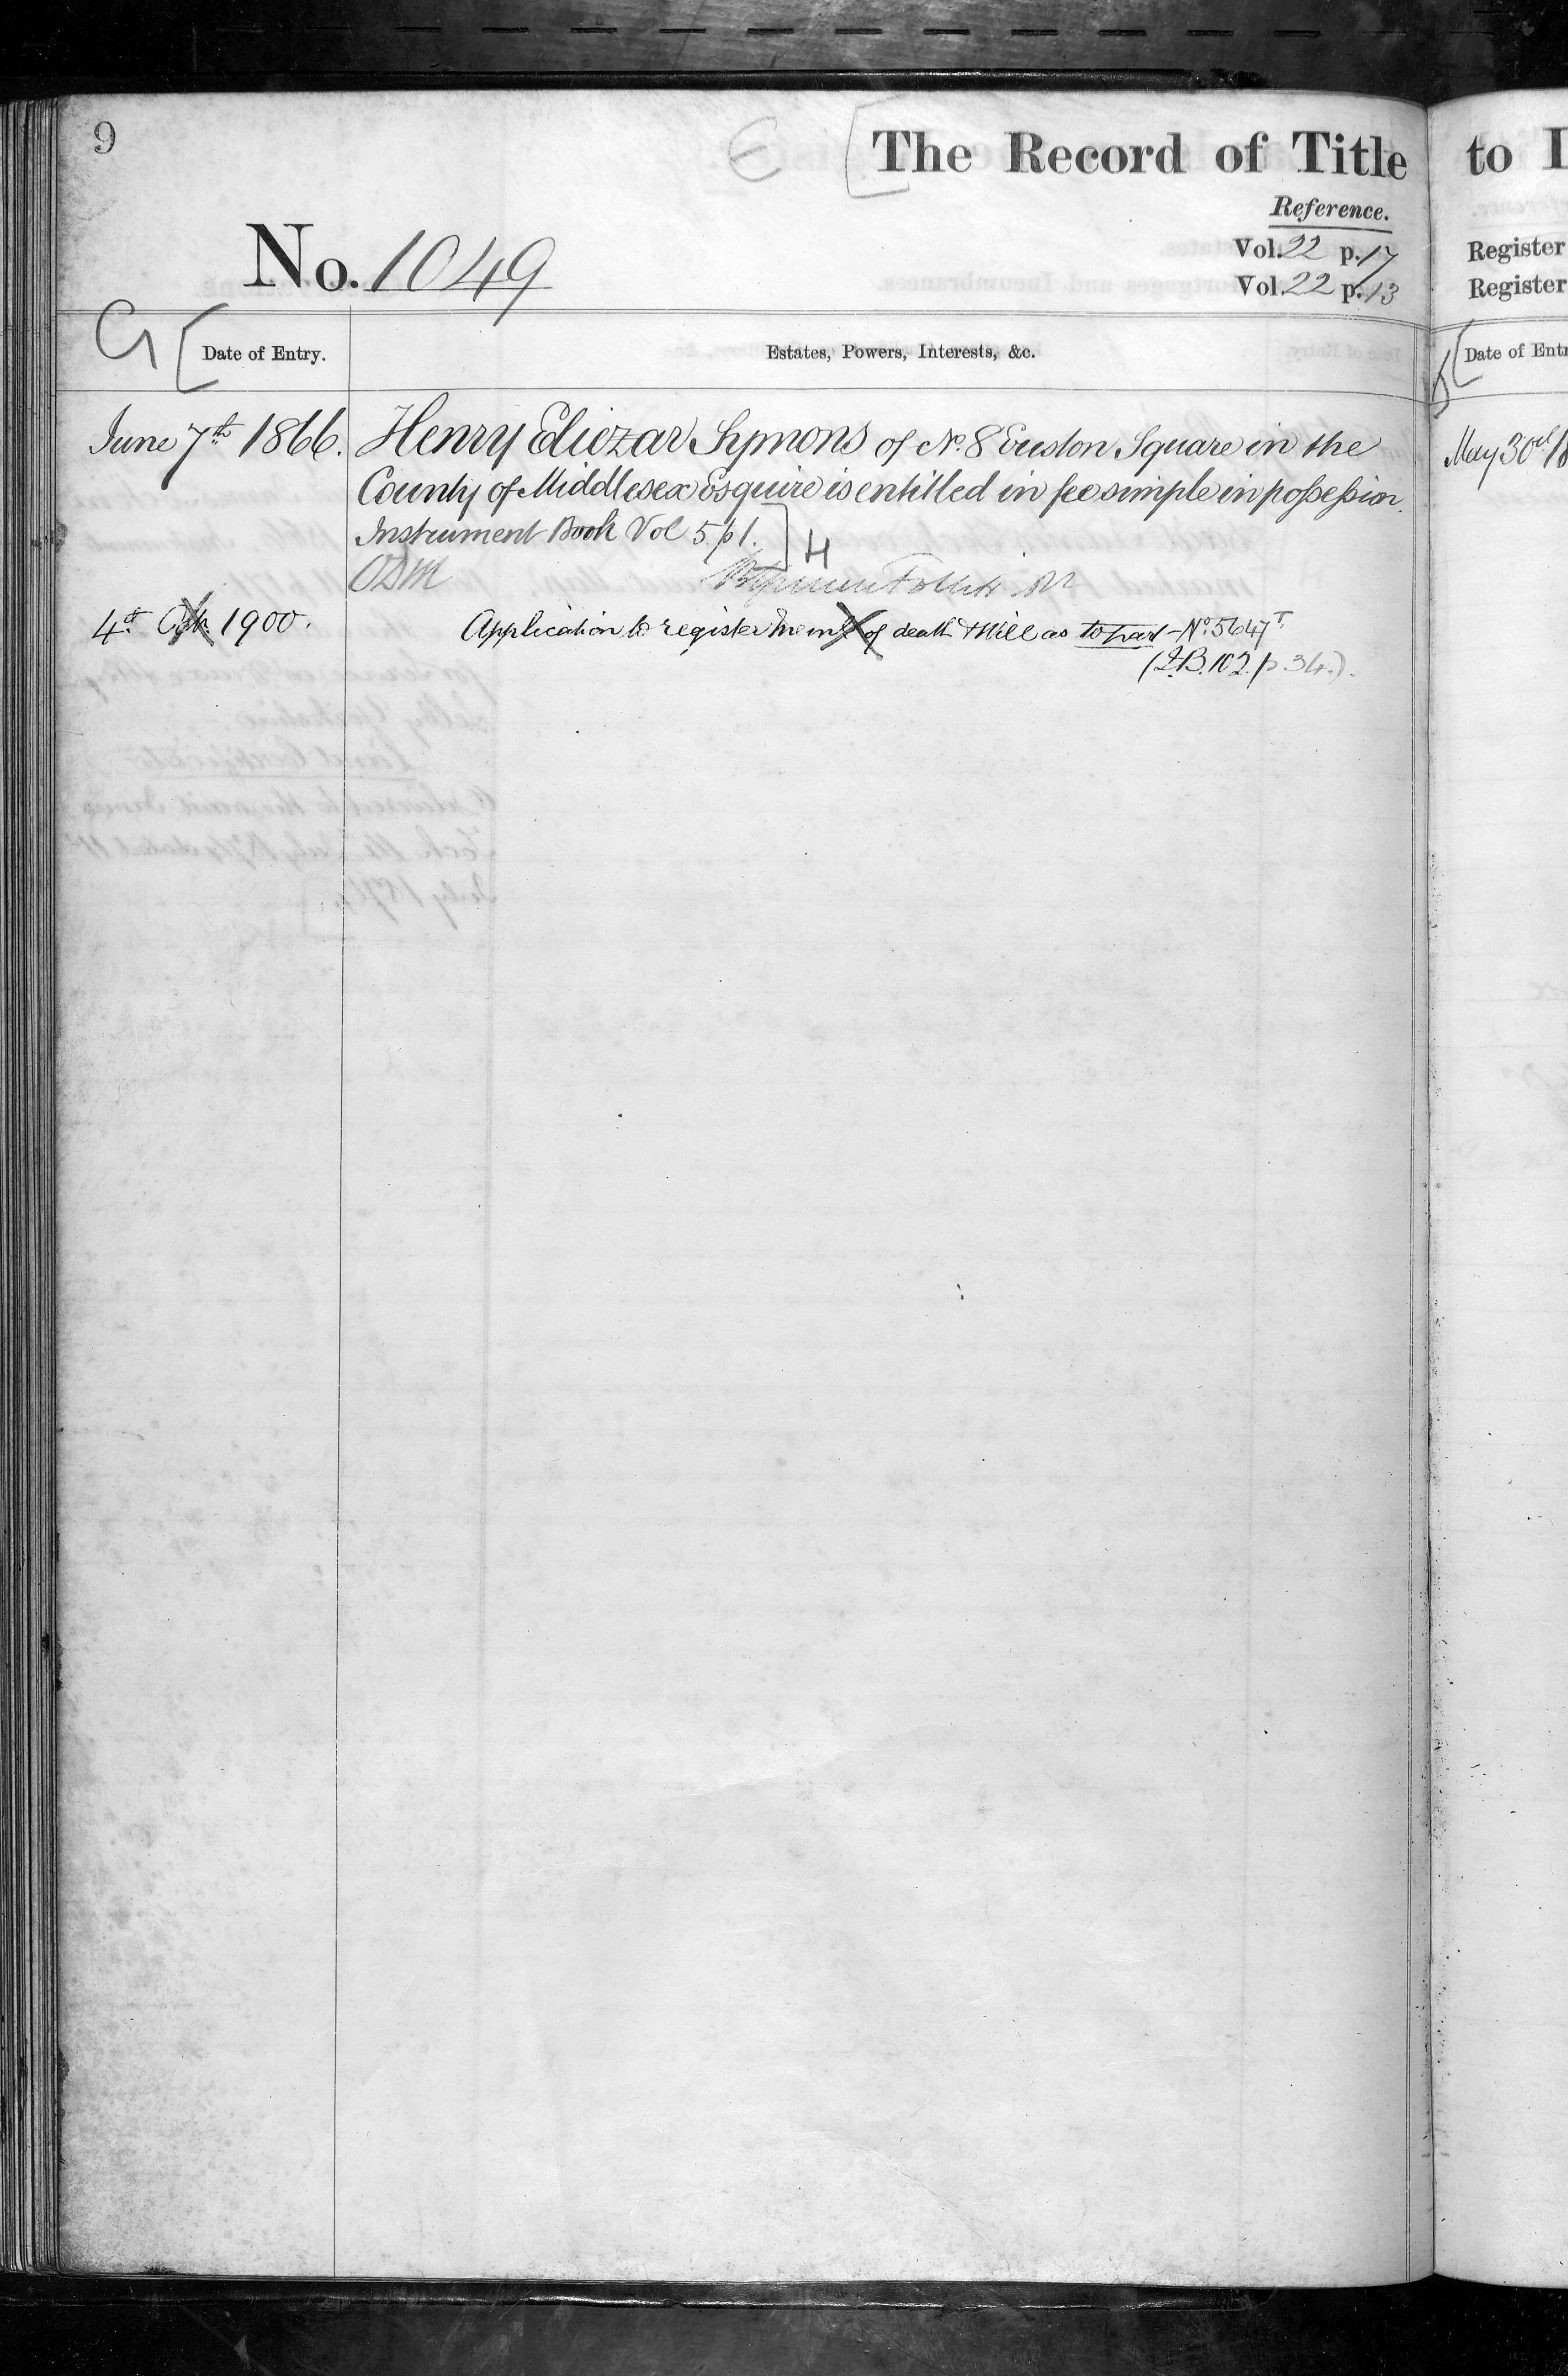 9
E [ The Record of Title
Reference.
No. 1049
Vol. 22 p. 17
Vol. 22 p. 13
G [ Date of Entry.
Estates, Powers, Interests, &c.
June 7th 1866.
Henry Eliezar Symons of No. 8 Euston Square in the
County of Middlesex Esquire is entitled in fee simple in possession.
Instrument Book Vol 5 p 1. ] H
4th Octr. 1900.
Application to register Meml of death & Will as to part - No. 5647 T
(I.B. 102. p. 34.).
to
Register
Register
Date of
May 30